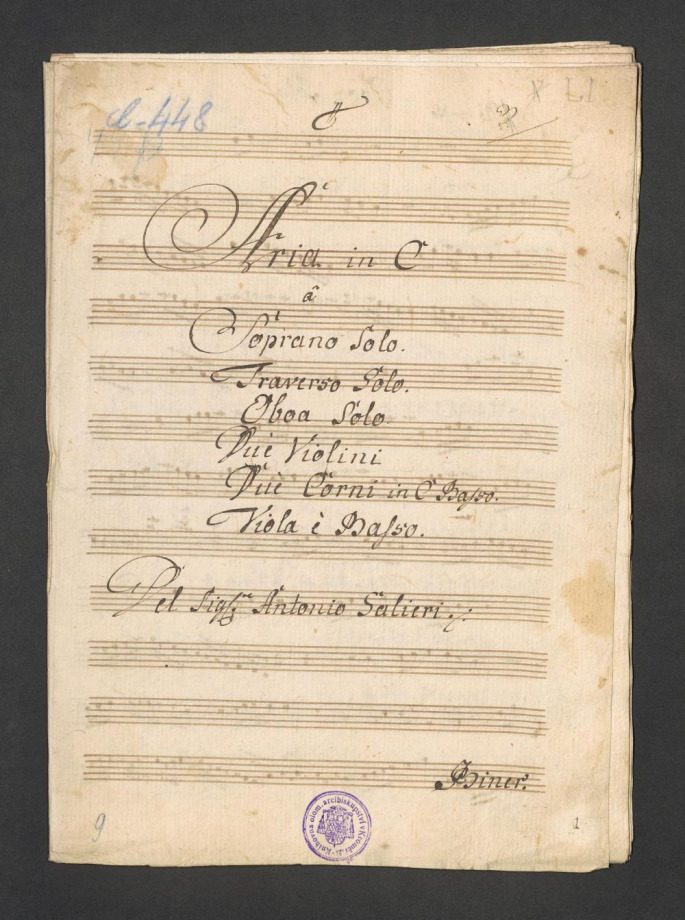 d-448
Aria in C
â
Soprano Solo.
Traverso Solo.
Oboa Solo.
Due Violini
Due Corni in C Basso.
Viola è Basso.
Del Sigre Antonio Salieri
Knihovna olom. arcibiskupství v Kroměříži
9
1